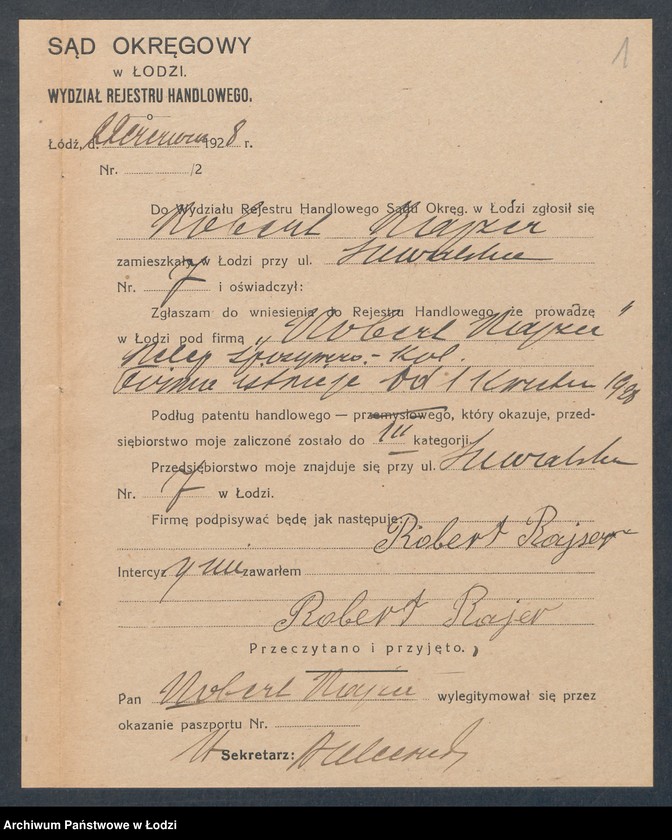 1
SĄD OKRĘGOWY
w ŁODZI.
WYDZIAŁ REJESTRU HANDLOWEGO.
Łódź, d. Czerwca 1928 r.
Nr. /2
Do Wydziału Rejestru Handlowego Sądu Okręg. w Łodzi zgłosił się
Robert Rajzer
zamieszkały w Łodzi przy ul. Suwalska
Nr. 7 i oświadczył:
Zgłaszam do wniesienia do Rejestru Handlowego, że prowadzę
w Łodzi pod firmą „Robert Rajzer”
Sklep spożywczo.-kol.
Firma istnieje od 1 Kwietnia 1928
Podług patentu handlowego — przemysłowego, który okazuje, przed-
siębiorstwo moje zaliczone zostało do III kategorji.
Przedsiębiorstwo moje znajduje się przy ul. Suwalska
Nr. 7 w Łodzi.
Firmę podpisywać będę jak następuje:
Robert Rajser
Intercyzy nie zawarłem
Robert Rajer
Przeczytano i przyjęto.
Pan Robert Rajzer wylegitymował się przez
okazanie paszportu Nr.
Sekretarz:
Archiwum Państwowe w Łodzi